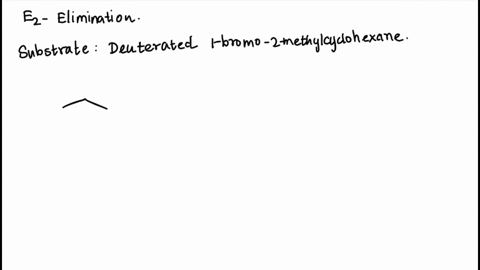 E2- Elimination.
Substrate: Deuterated 1-bromo-2-methylcyclohexane.